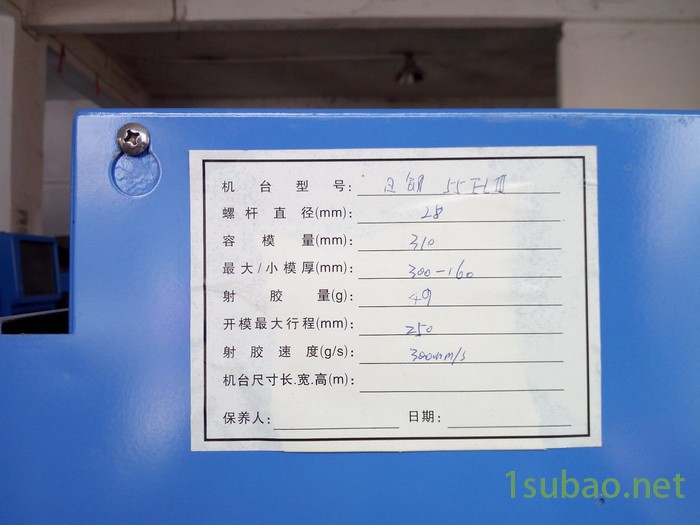 机台型号: 日钢 55ELIII
螺杆直径(mm): 28
容模量(mm): 310
最大/小模厚(mm): 300-160
射胶量(g): 49
开模最大行程(mm): 250
射胶速度(g/s): 300mm/s
机台尺寸长.宽.高(m):
保养人: 日期:
1subao.net